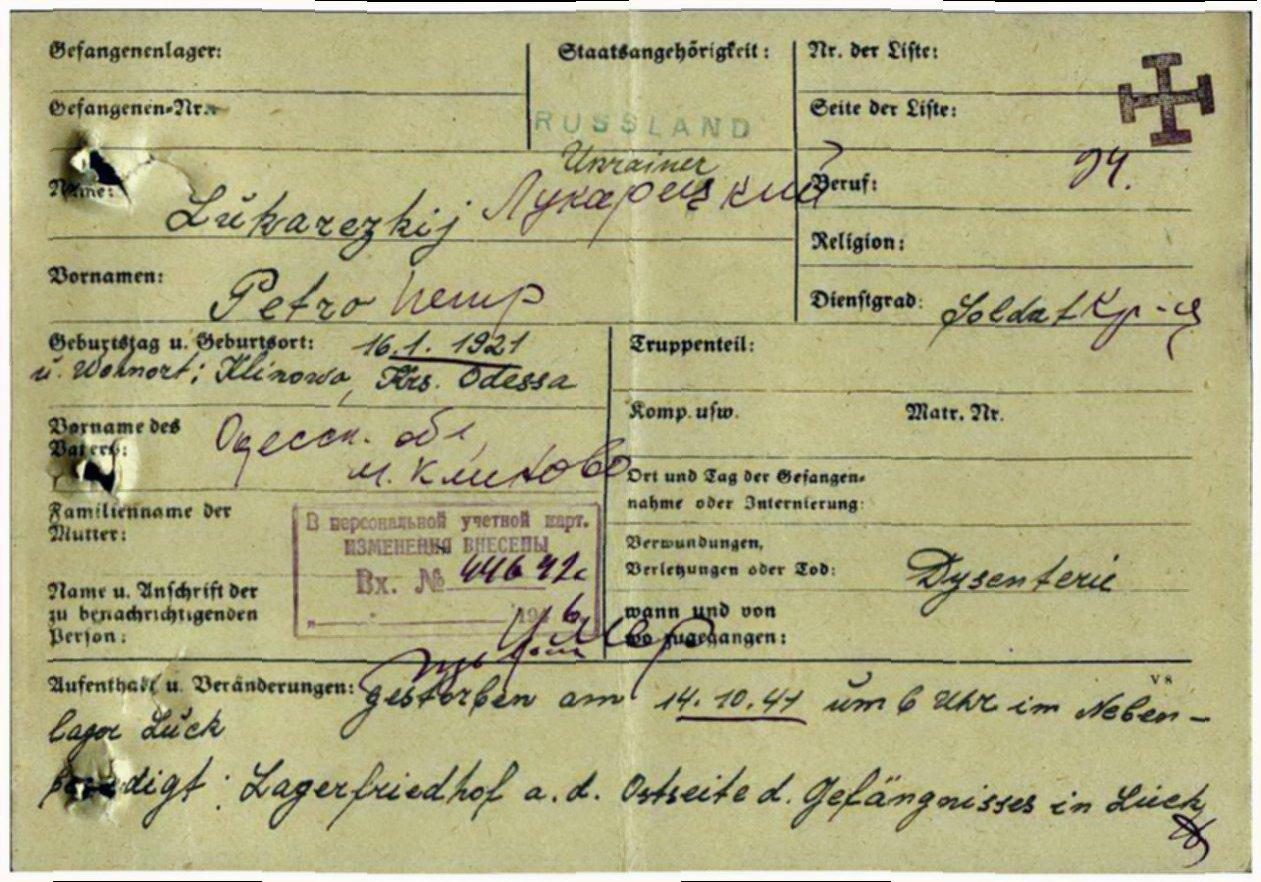 Gefangenenlager:
Staatsangehörigkeit:
Nr. der Liste:
Gefangenen-Nr.:
RUSSLAND
Seite der Liste:
Ukrainer
Name:
Lukarezkij Лукарецкий
Beruf:
Religion:
Vornamen:
Petro Петр
Dienstgrad: Soldat Кр-ц
Geburtstag u. Geburtsort: 16.1.1921
u. Wohnort: Klinowo, Krs. Odessa
Truppenteil:
Komp. usw.
Matr. Nr.
Vorname des
Vaters:
Одесск. обл,
м. Климово
Ort und Tag der Gefangen-
nahme oder Internierung:
Familienname der
Mutter:
В персональной учетной карт.
ИЗМЕНЕНИЯ ВНЕСЕНЫ
Вх. № 44642с
194 6
Verwundungen,
Verletzungen oder Tod: Dysenterie
Name u. Anschrift der
zu benachrichtigenden
Person:
wann und von
wo zugegangen:
умер
VS
Aufenthalt u. Veränderungen: gestorben am 14.10.41 um 6 Uhr im Neben-
lager Luck
beerdigt: Lagerfriedhof a. d. Ostseite d. Gefängnisses in Luck